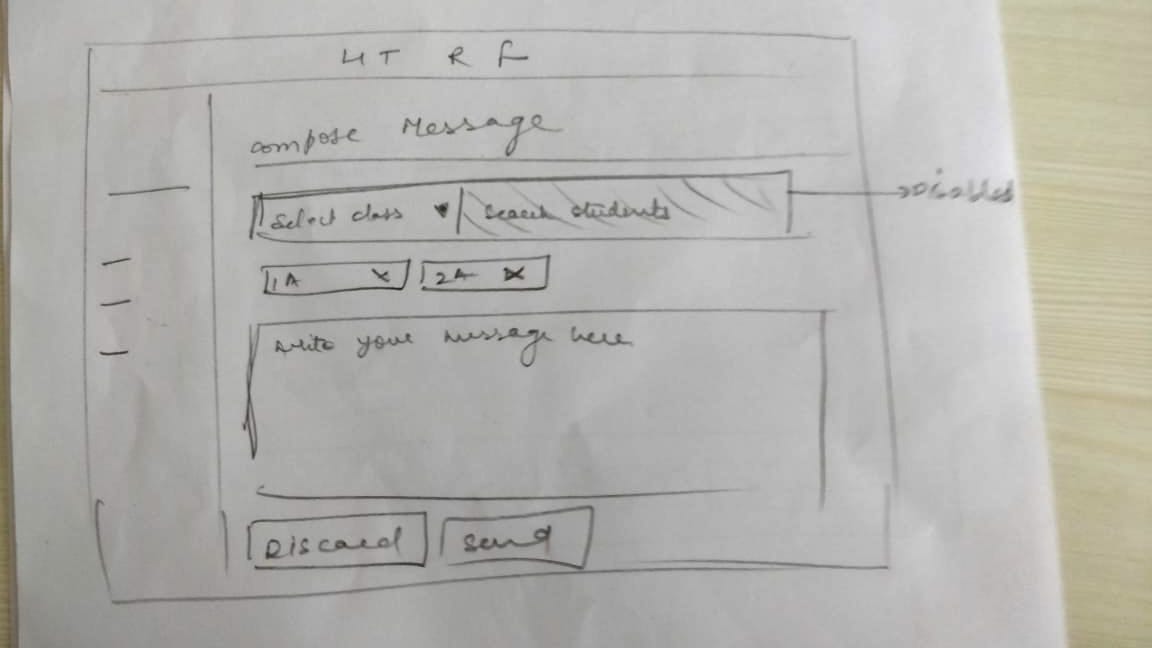 HT R F
compose Message
Select class ▾ Search students
Disabled
1A X 2A X
write your message here
Discard Send